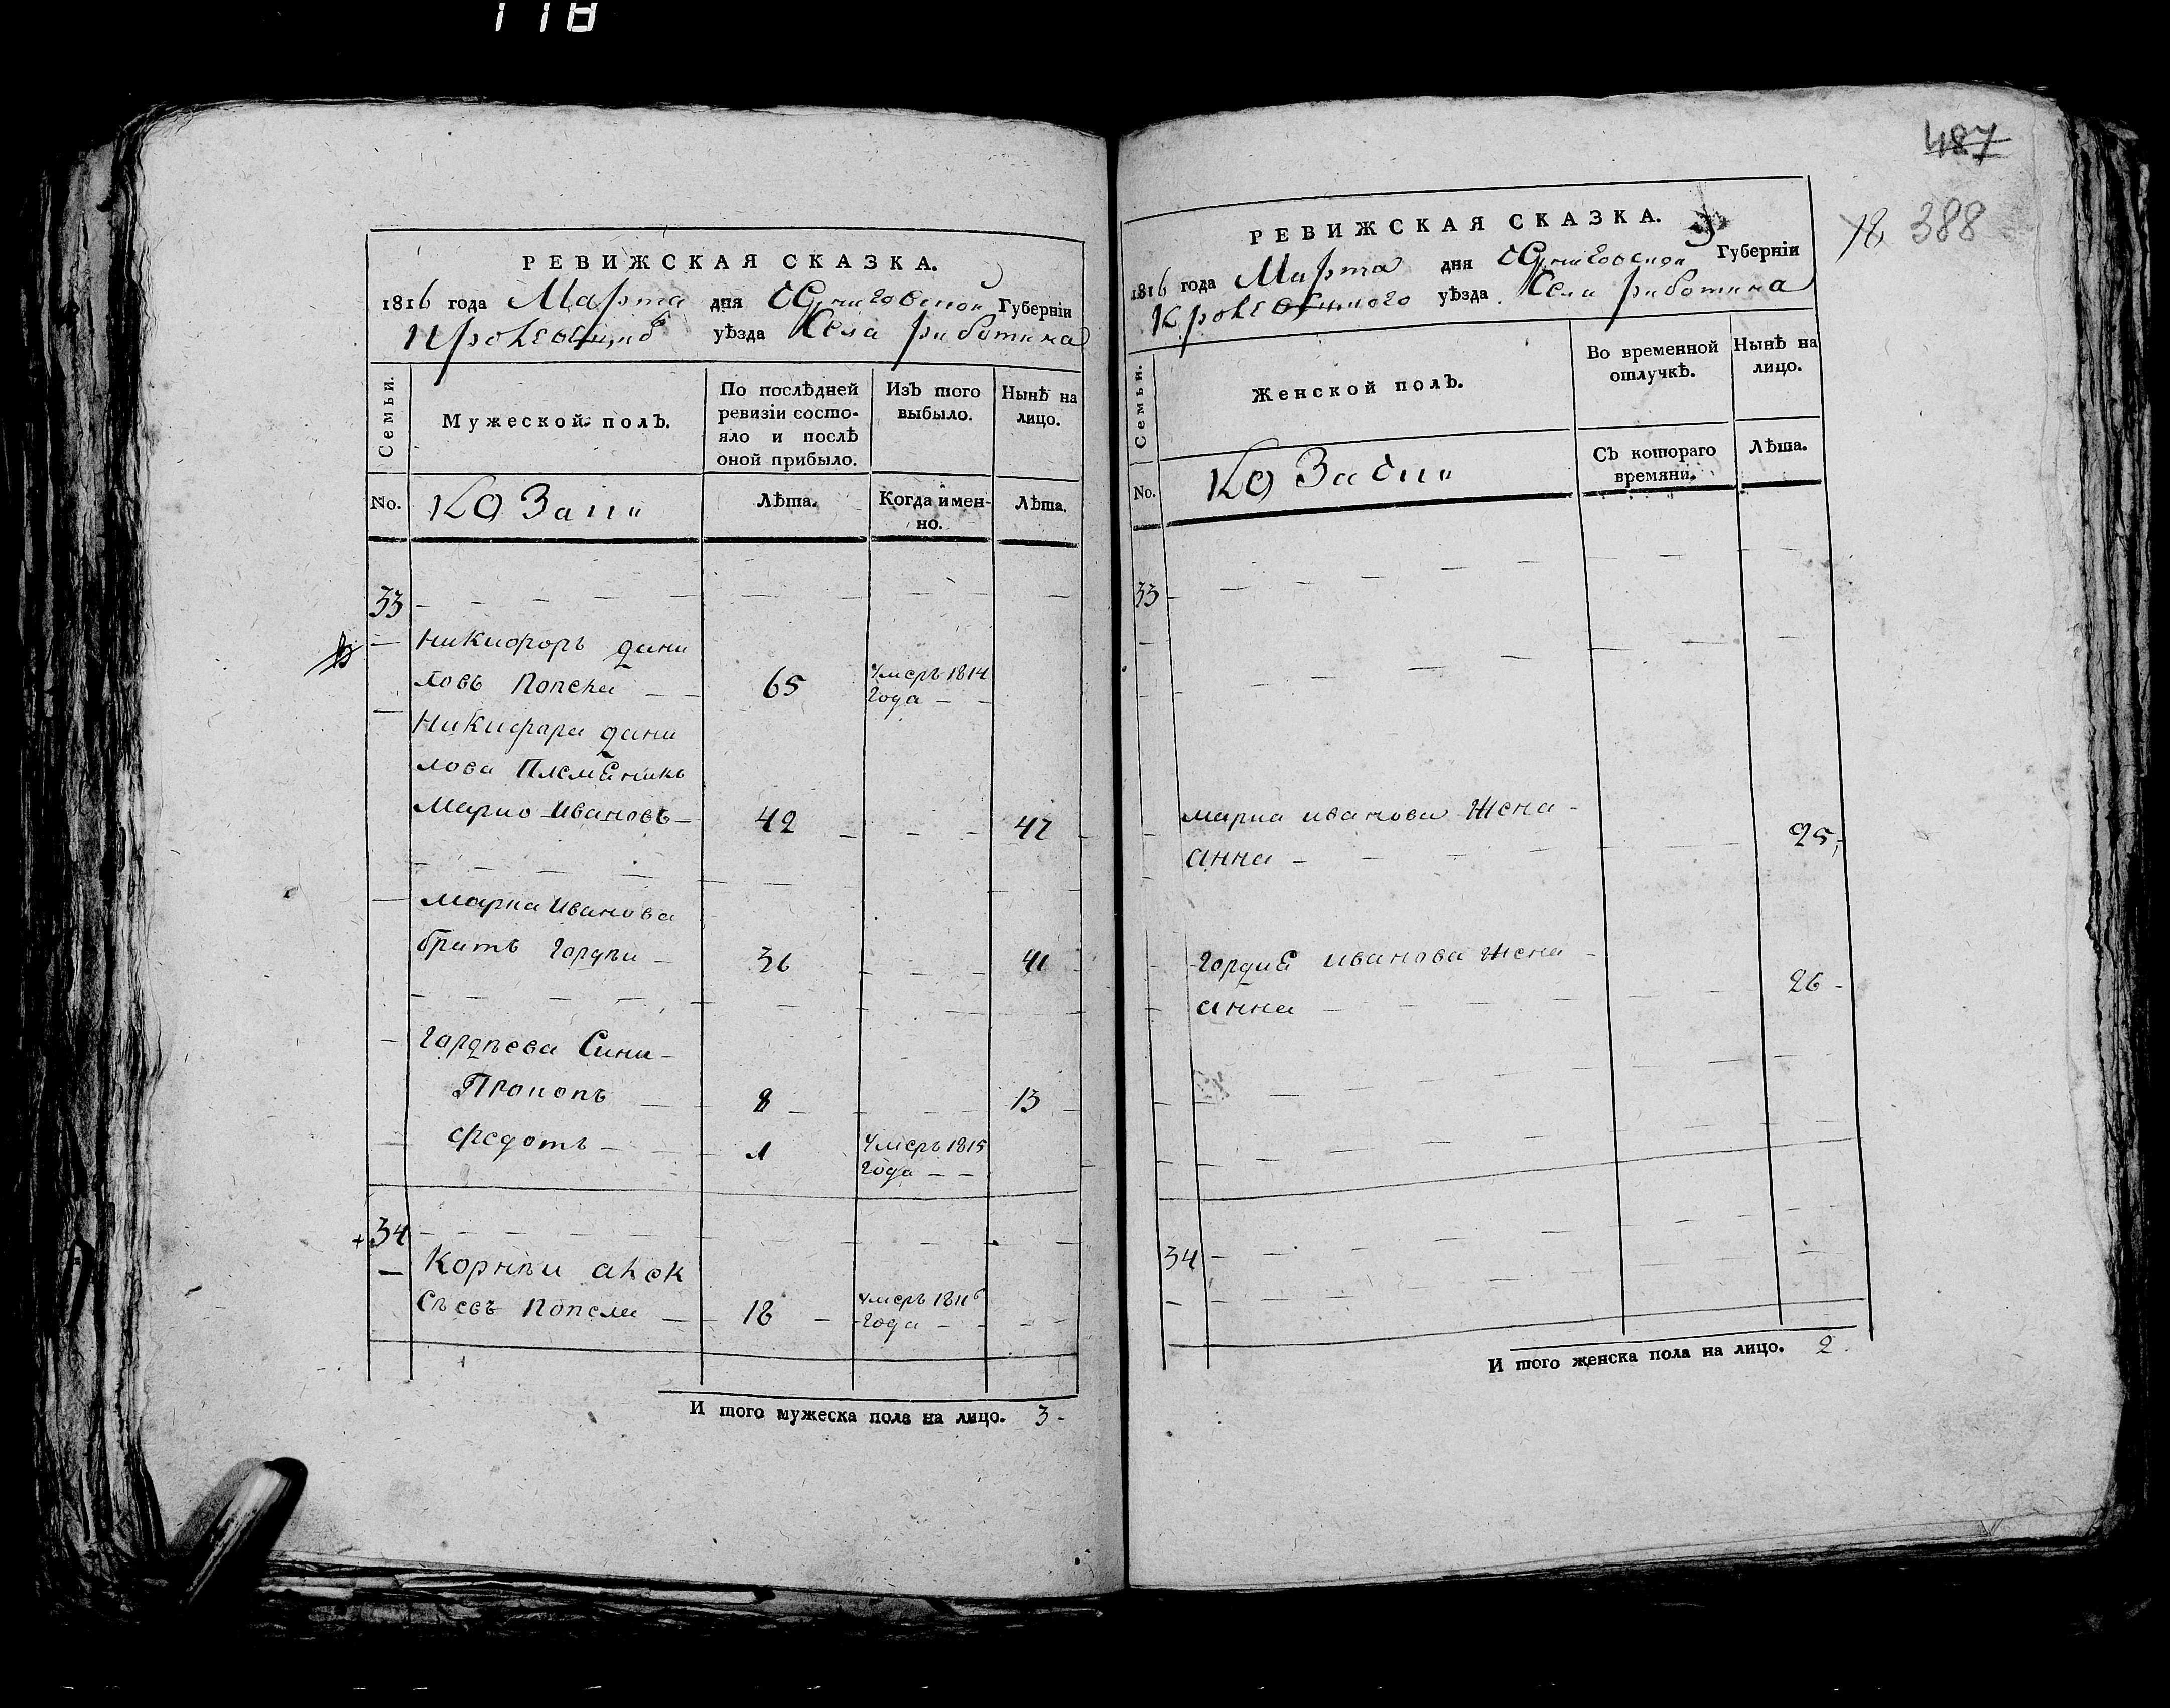 118
РЕВИЖСКАЯ СКАЗКА.
1816 года Марта дня Черниговской Губерніи
уѣзда Села риботина
Семьи.
Мужеской полъ.
По послѣдней ревизіи состо-
яло и послѣ
оной прибыло.
Изъ того
выбыло.
Нынѣ на
лицо.
No.
Козаки
Лѣта.
Когда имен-
но.
Лѣта.
33
Никифоръ дани
ловъ Попека 65 Умеръ 1814
Года
Никифора дани
лова Племѣникъ
Марко Ивановъ 42 47
Марка Иванова
братъ Гордѣи 36 41
Гордѣева Сини
Прокопъ 8 13
Федотъ 1 Умеръ 1815
Года
34
Корнѣи алек
сѣевъ 18 Умеръ
Года
И того мужеска пола на лицо. 3
487
388
РЕВИЖСКАЯ СКАЗКА.
1816 года Марта дня Черниговской Губерніи
Кролевецкого уѣзда Села риботина
Семьи.
Женской полъ.
Во временной
отлучкѣ.
Нынѣ на
лицо.
No.
Козачки
Съ котораго
времяни.
Лѣта.
33
Марка иванова Жена
анна 25
Гордиѣ иванова жена
анна 26
34
И того женска пола на лицо. 2